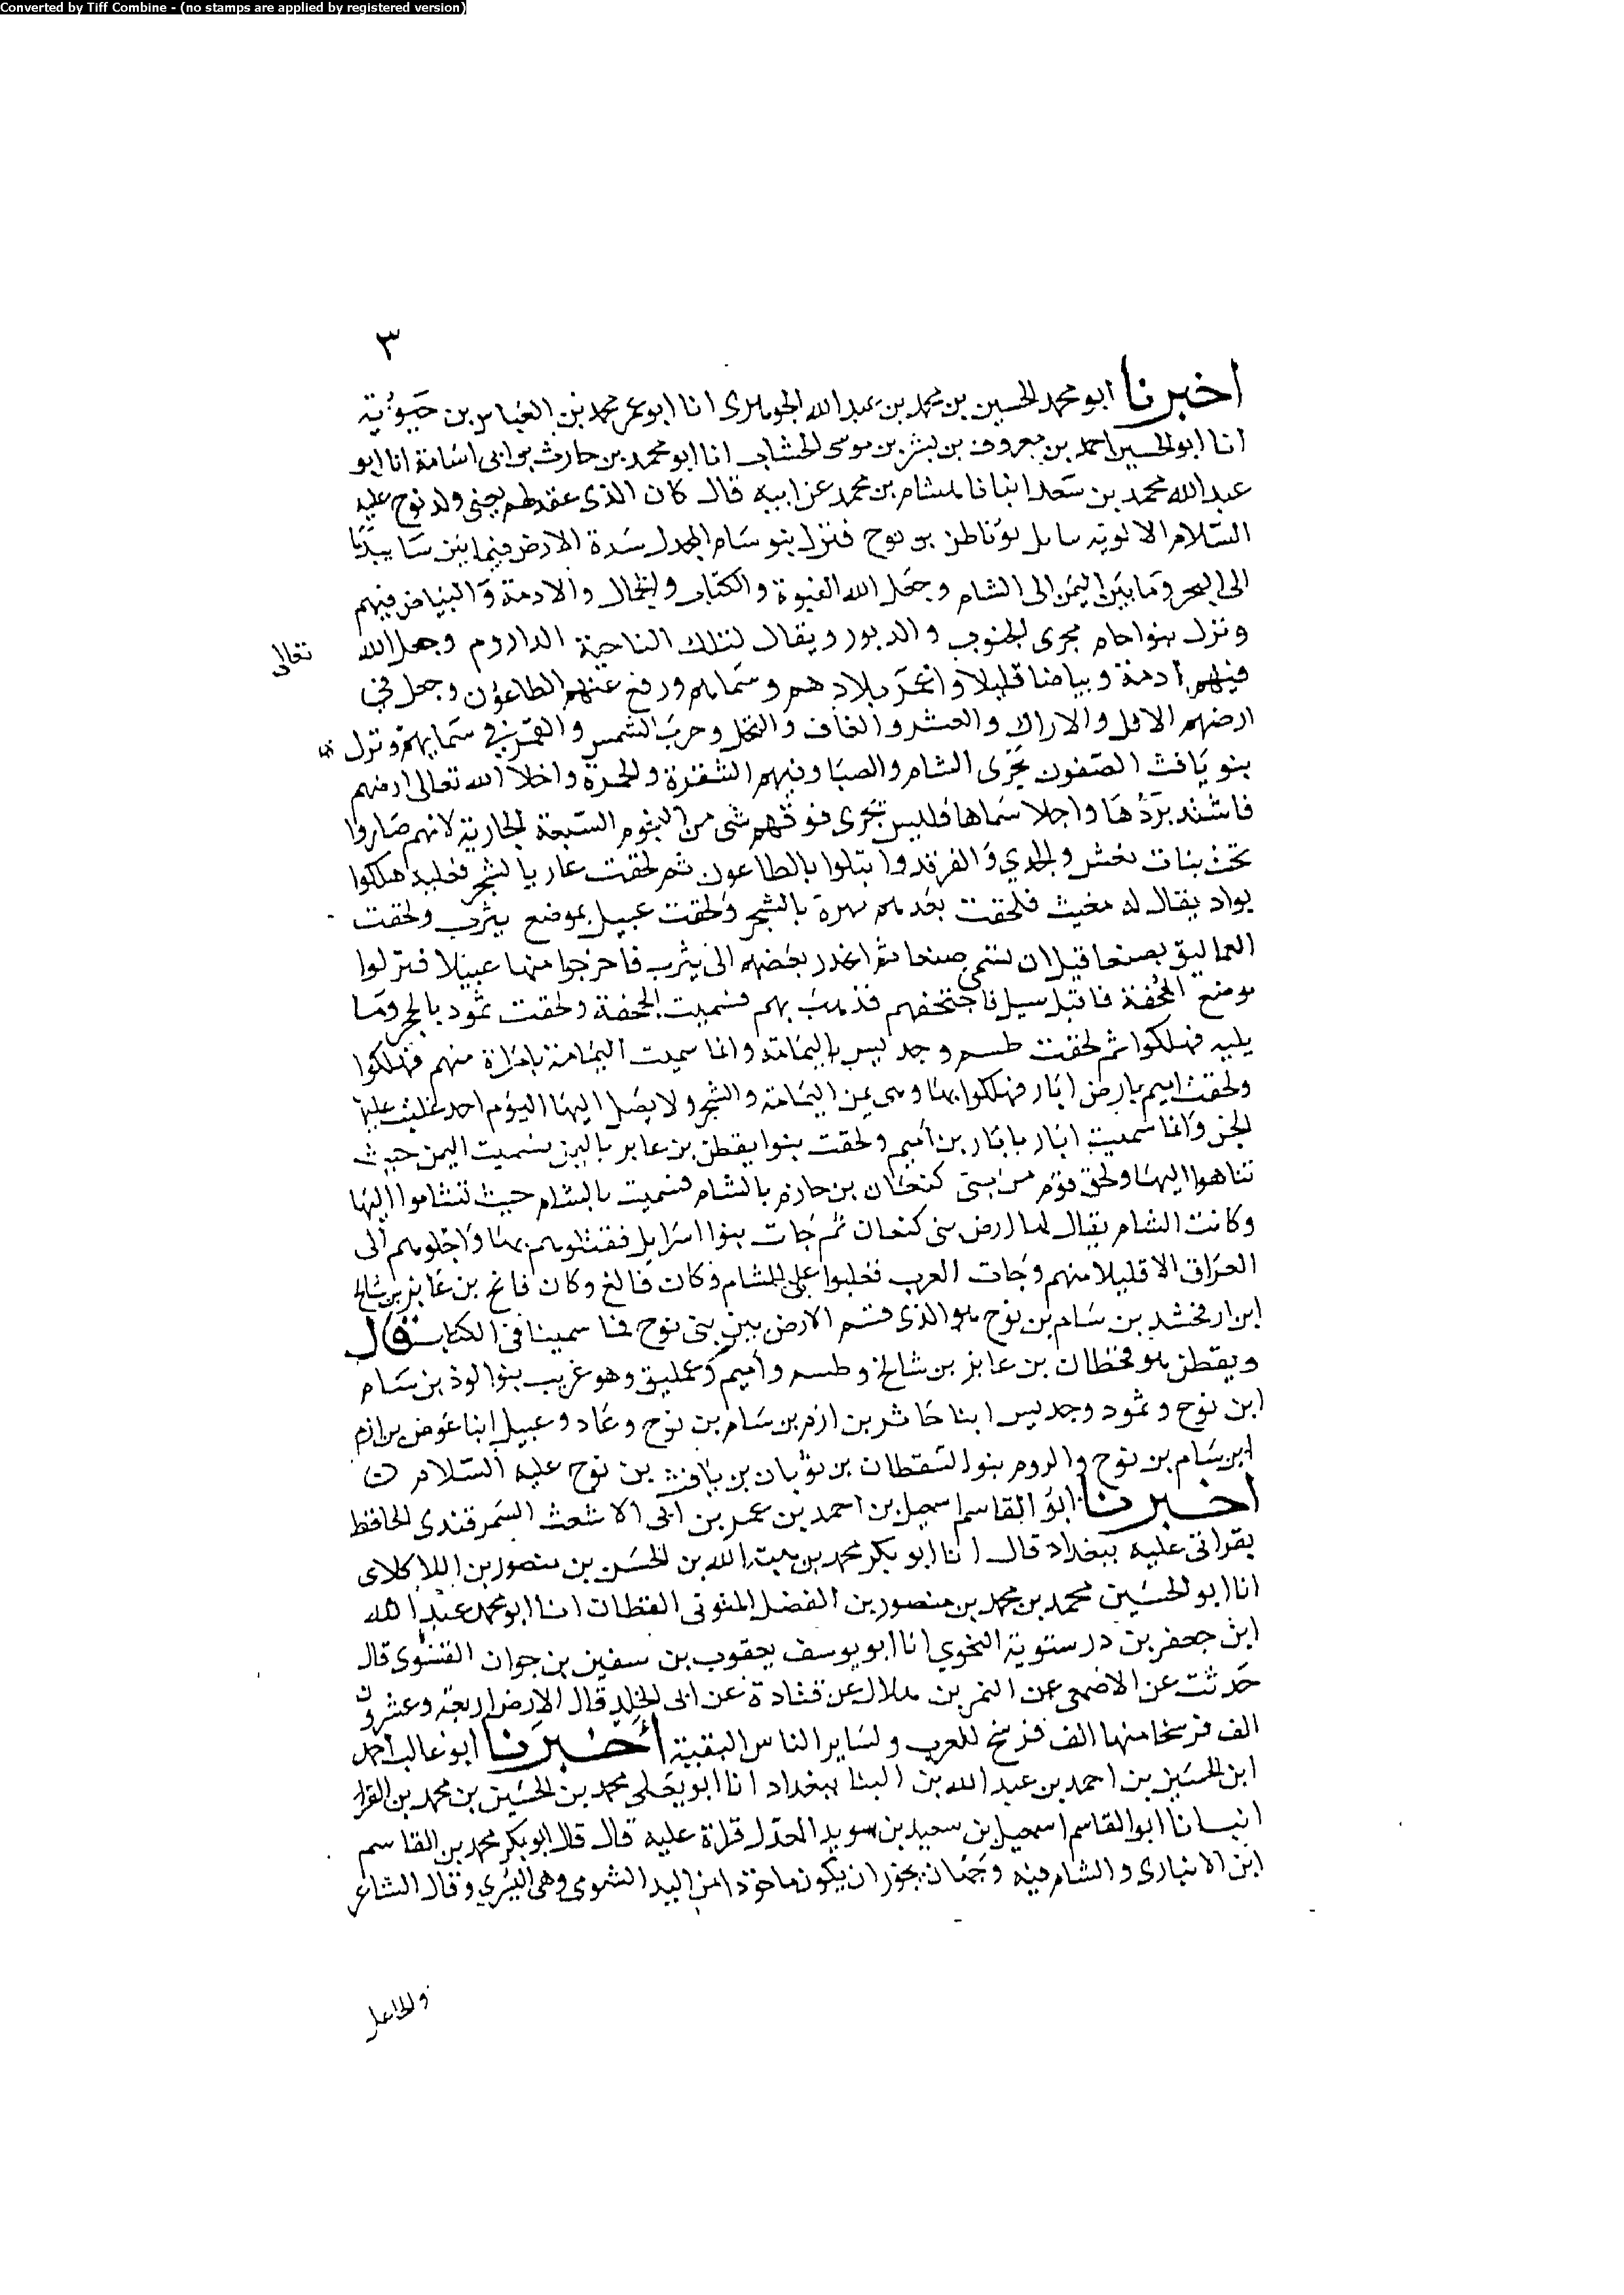 Converted by Tiff Combine - (no stamps are applied by registered version)
٣
اخبرنا ابو محمد الحسين بن محمد بن عبد الله الجوهرى انا ابو عمر محمد بن العباس بن حيوية
انا ابو الحسين احمد بن معروف بن بشر بن موسى الخشاب انا ابو محمد بن حارث بن ابى اسامة انا ابو
عبد الله محمد بن سعد انبانا هشام بن محمد عن ابيه قال كان الذى عقد لهم يعنى ولد نوح عليه
السلام الالوية بن نوح فنزل بنو سام المجدل سرة الارض فيما بين ساتيدما
الى البحر وما بين اليمن الى الشام وجعل الله النبوة والكتاب والجمال والادمة والبياض فيهم
ونزل بنوا حام مجرى الجنوب والدبور ويقال لتلك الناحية الداروم وجعل الله
تعالى
فيهم ادمة وبياضا قليلا بلادهم وسماهم ورفع عنهم الطاعون وجعل في
ارضهم الاثل والاراك والعشر والغاف والنخل وجرت الشمس والقمر في سمايهم ونزل
بنو يافث الصفون مجرى الشام والصبا وفيهم الشقرة والحمرة واخلا الله تعالى ارضهم
فاشتد بردها واجلا سماها فليس تجرى فوقهم شى من النجوم السبعة الجارية لانهم صاروا
تحت بنات نعش والجدي والفرقد وابتلوا بالطاعون ثم لحقت عاد بالشحر فعليه هلكوا
بواد يقال له مغيث فلحقت بعدهم مهرة بالشحر ولحقت عبيل بموضع يثرب ولحقت
العماليق بصنعا قبل ان تسمى صنعا ثم انحدر بعضهم الى يثرب فاخرجوا منها عبيلا فنزلوا
موضع الجحفة فاقبل سيل فاجتحفهم فذهب بهم فسميت الجحفة ولحقت ثمود بالحجر وما
يليه فهلكوا ثم لحقت طسم وجديس باليمامة وانما سميت اليمامة بامراة منهم فهلكوا
ولحقت اميم بارض ابار فهلكوا بها وهى بين اليمامة والشحر ولا يصل اليها اليوم احد غلبت عليها
الجن وانما سميت ابار بابار بن اميم ولحقت بنوا يقطن بن عابر باليمن فسميت اليمن حيث
تناهوا اليها ولحق قوم من بنى كنعان بن حام بالشام فسميت بالشام حيث تشاموا اليها
وكانت الشام يقال لها ارض بنى كنعان ثم جات بنوا اسرايل فقتلوهم بها واجلوهم الى
العراق الا قليلا منهم وجات العرب فغلبوا على الشام فكان فالغ وكان فالغ بن عابر بن شالخ
ابن ارفخشد بن سام بن نوح هو الذى قسم الارض بين بنى نوح كما سمينا فى الكتاب قال
ويقطن هو قحطان بن عابر بن شالخ وطسم واميم وعمليق وهو غريب بنوا لوذ بن سام
ابن نوح وثمود وجديس ابنا جاثر بن ارم بن سام بن نوح وعاد وعبيل ابنا عوض بن ارم
ابن سام بن نوح والروم بنوا لنقطان بن يونان بن يافث بن نوح عليه السلام ن
اخبرنا ابو القاسم اسمعيل بن احمد بن عمر بن ابى الاشعث السمرقندى الحافظ
بقراتى عليه ببغداد قال انا ابو بكر محمد بن هبة الله بن الحسن بن منصور بن اللالكائى
انا ابو الحسين محمد بن محمد بن منصور بن الفضل المتوثى القطان انا ابو محمد عبد الله
ابن جعفر بن درستوية النحوي انا ابو يوسف يعقوب بن سفين بن جوان الفسوى قال
حدثت عن الاصمعى عن النمر بن هلال عن قتادة عن ابى الجلد قال الارض اربعة وعشرون
الف فرسخا منها الف فرسخ للعرب ولساير الناس البقية اخبرنا ابو غالب احمد
ابن الحسين بن احمد بن عبد الله بن البنا ببغداد انا ابو يعلى محمد بن الحسين بن محمد بن الفرا
انبانا ابو القاسم اسمعيل بن سعيد بن سويد المعدل قراة عليه قال قال ابو بكر محمد بن القاسم
ابن الانبارى والشام فيه وجهان يجوز ان يكون ماخوذا من اليد الشومى وهى اليسرى وقال الشاعر